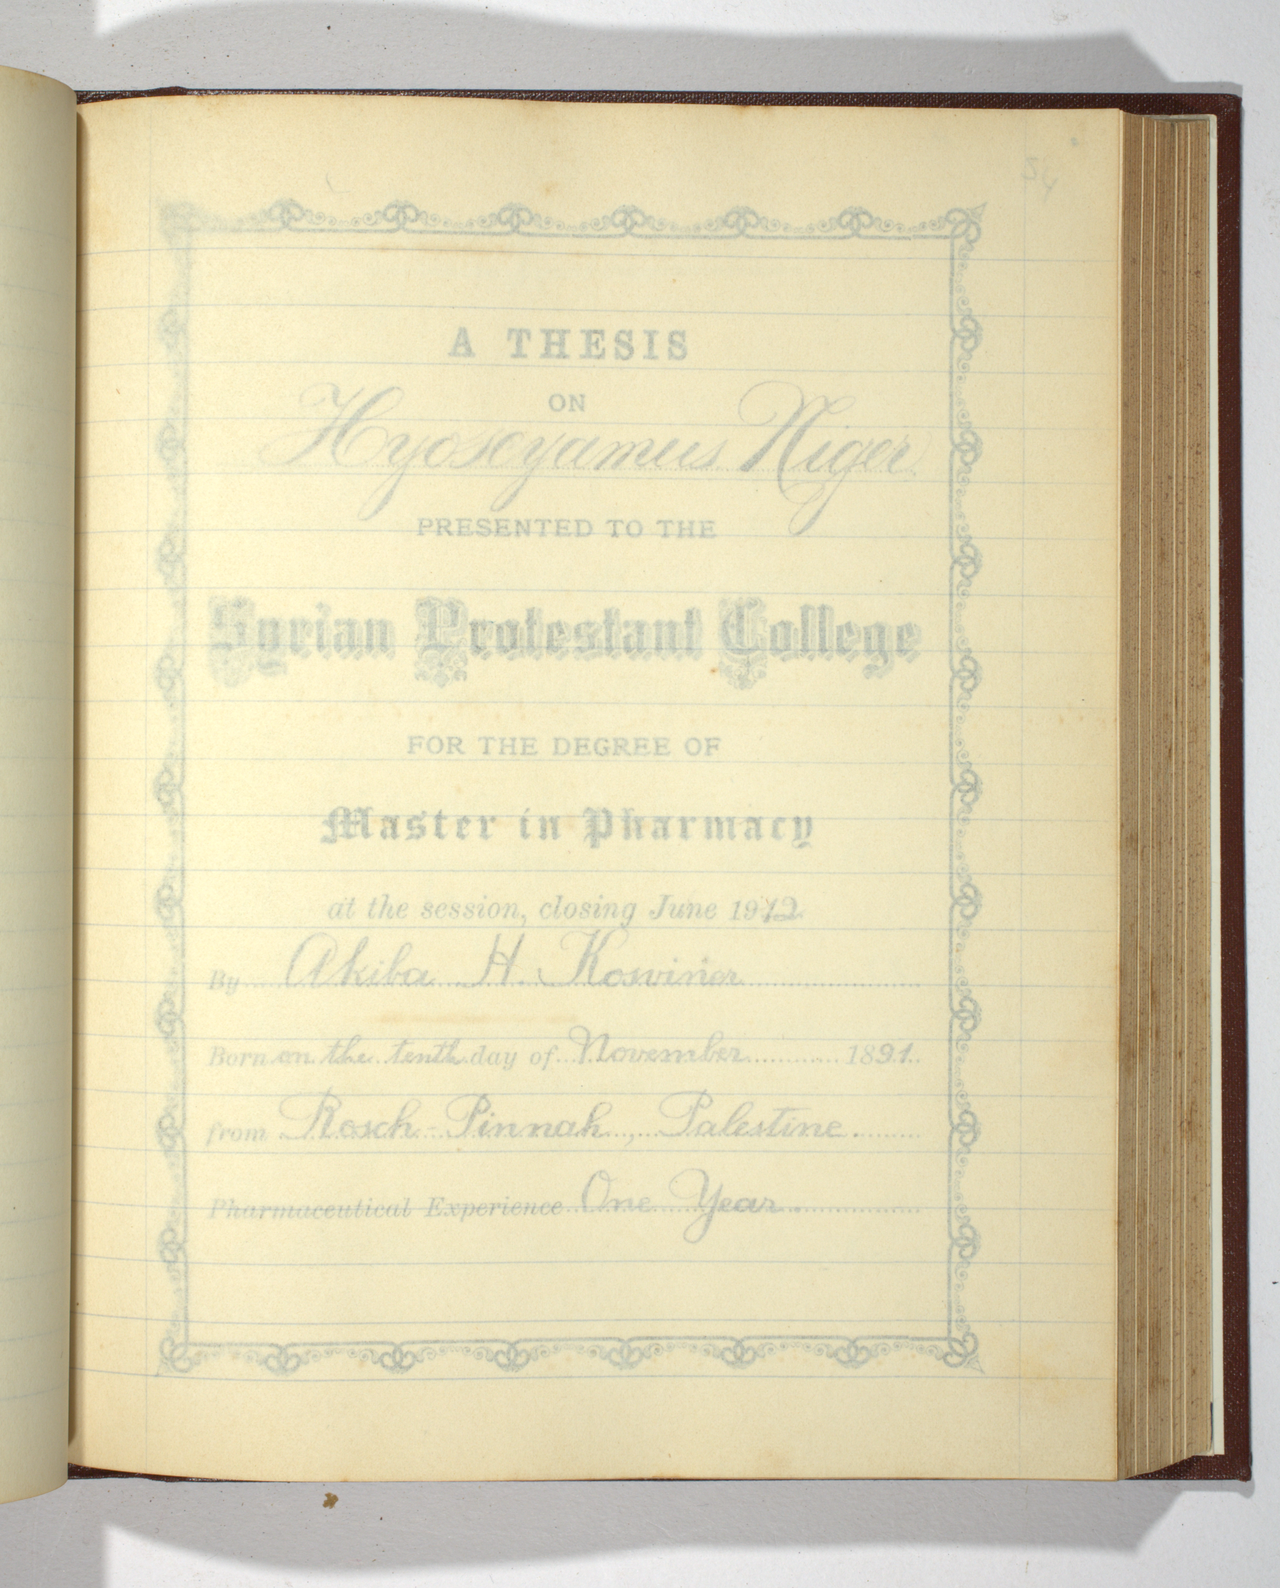 A THESIS
ON
Hyoscyamus Niger
PRESENTED TO THE
Syrian Protestant College
FOR THE DEGREE OF
Master in Pharmacy
at the session, closing June 1912
By Akiba H. Koswiner
Born on the tenth day of November 1891.
from Rosch-Pinnah, Palestine.
Pharmaceutical Experience One Year.